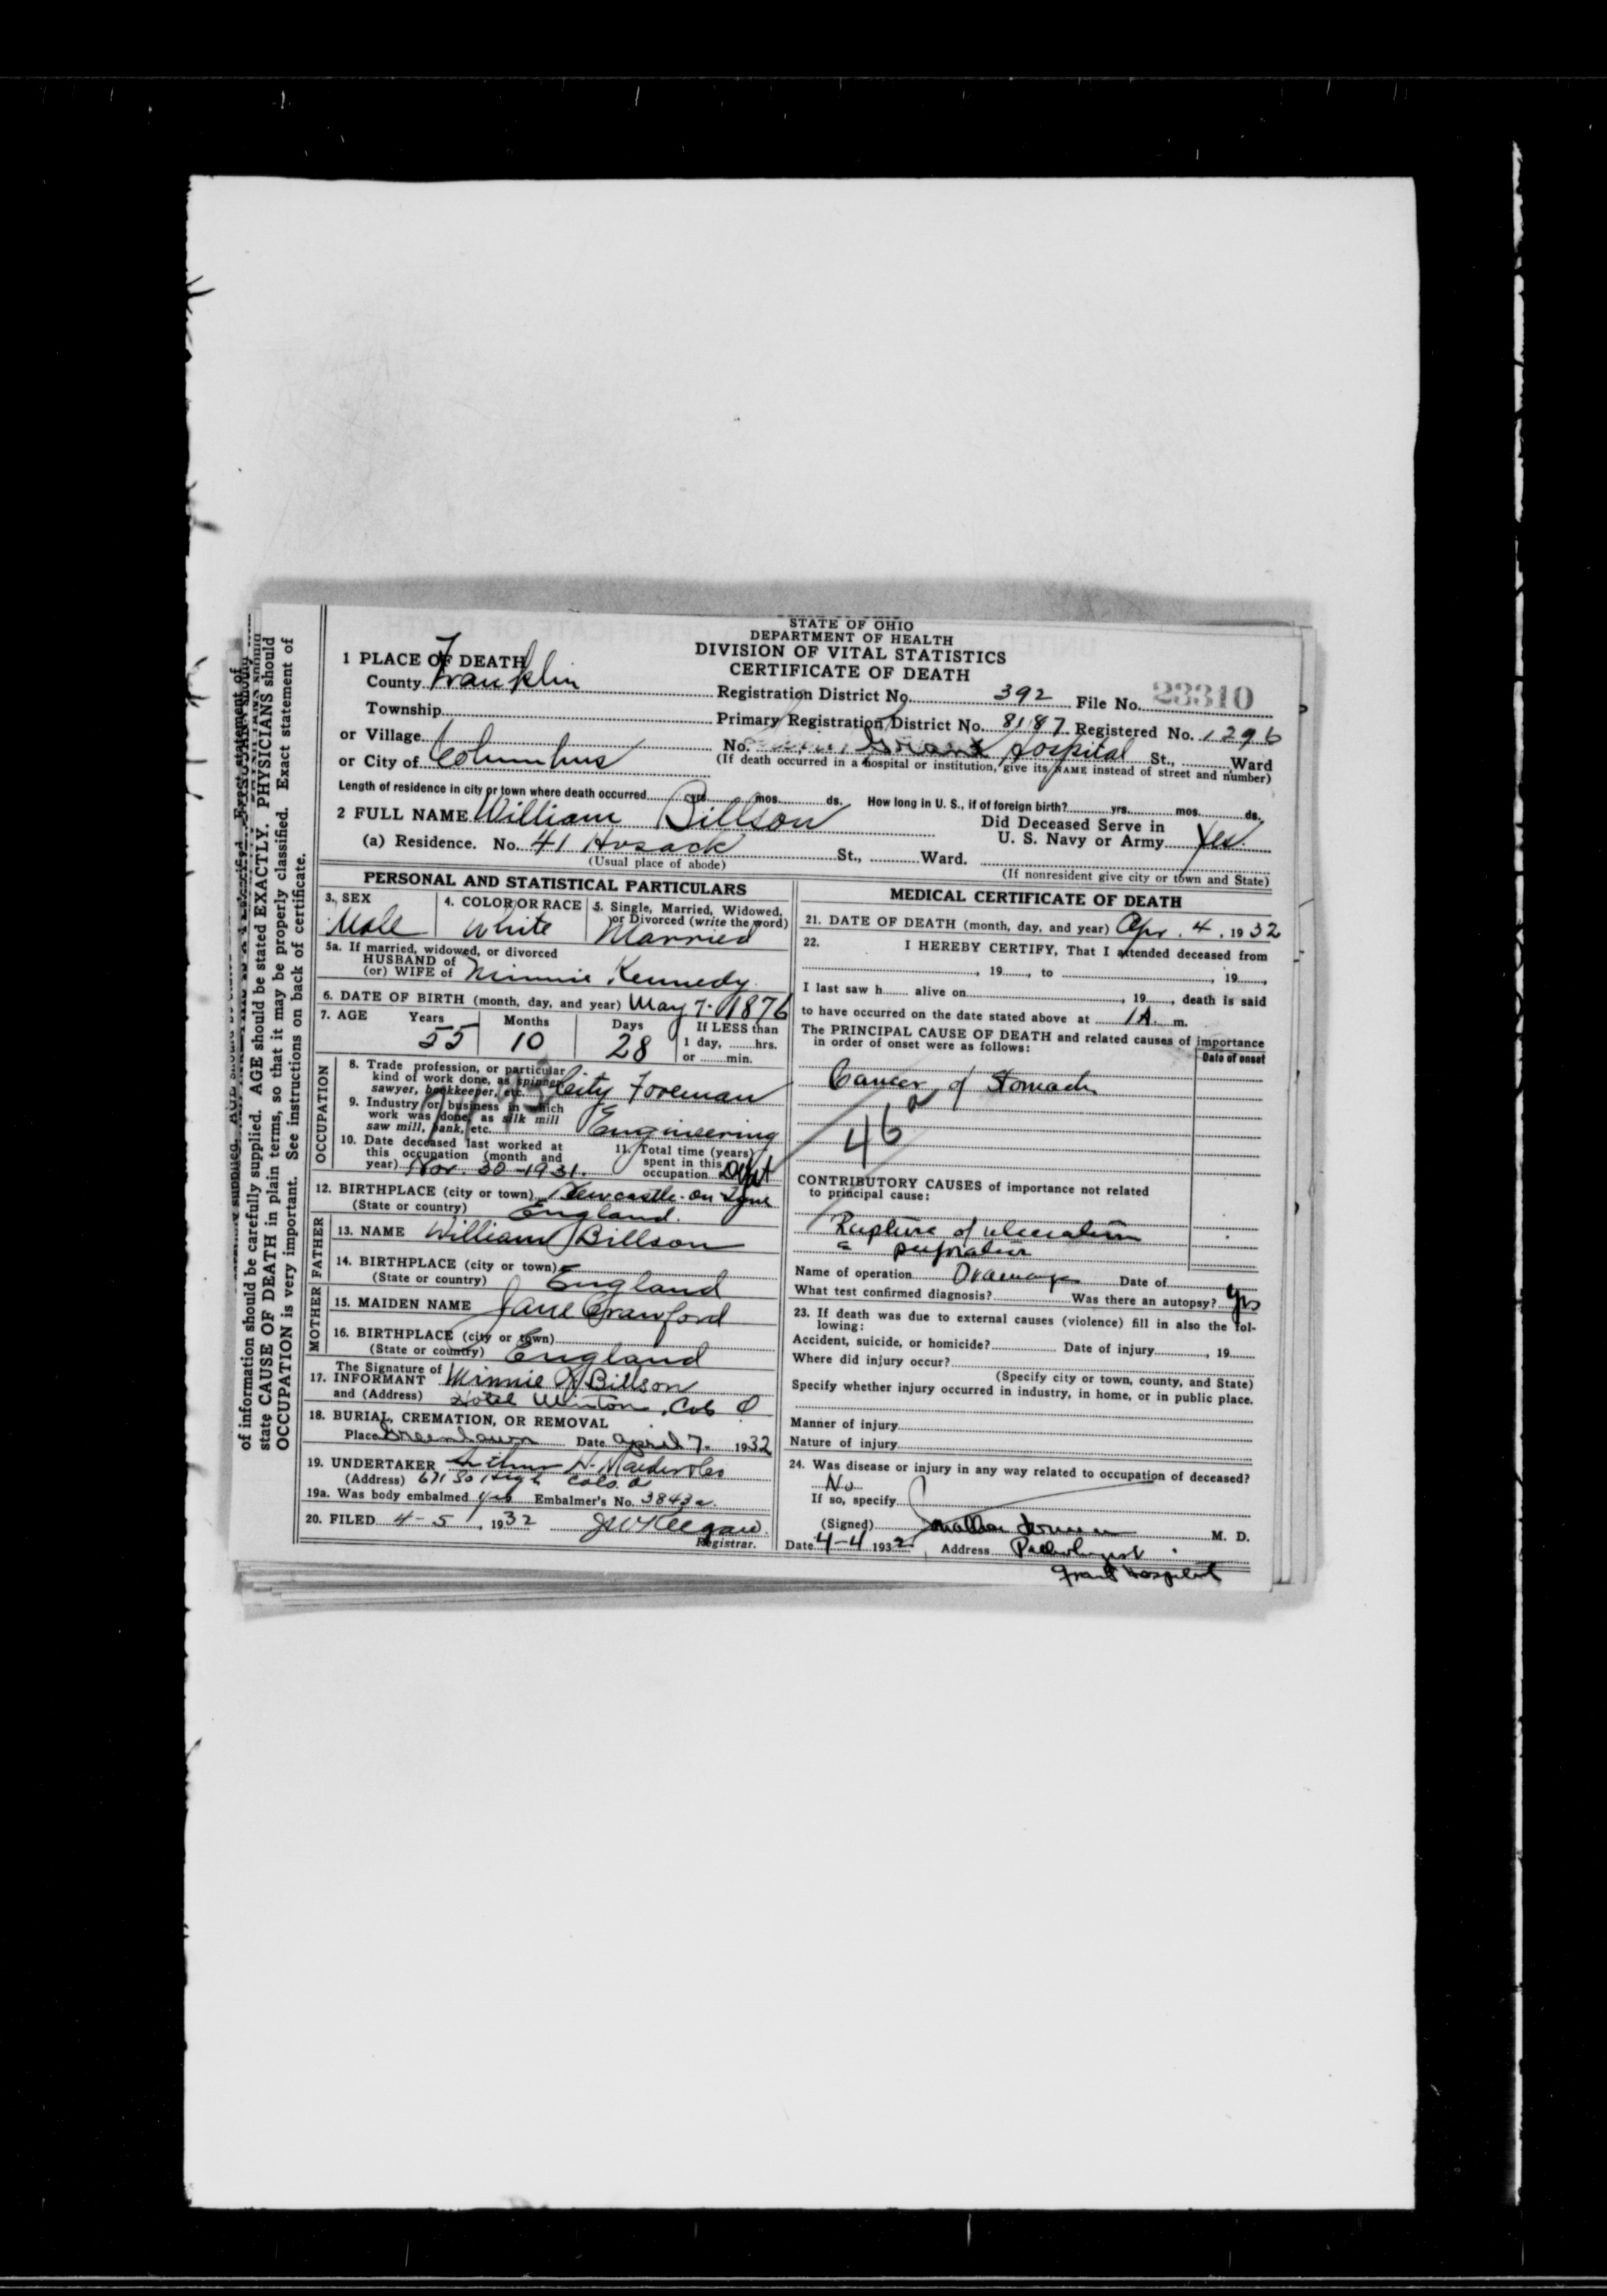 STATE OF OHIO
DEPARTMENT OF HEALTH
DIVISION OF VITAL STATISTICS
CERTIFICATE OF DEATH
1 PLACE OF DEATH
County Franklin
Registration District No. 392 File No. 23310
Township
Primary Registration District No. 8187 Registered No. 1296
or Village
No. Grant Hospital St., Ward
or City of Columbus
(If death occurred in a hospital or institution, give its NAME instead of street and number)
Length of residence in city or town where death occurred yrs. mos. ds. How long in U. S., if of foreign birth? yrs. mos. ds.
2 FULL NAME William Billson
Did Deceased Serve in
U. S. Navy or Army Yes
(a) Residence. No. 41 Hosack St., Ward.
(Usual place of abode)
(If nonresident give city or town and State)
PERSONAL AND STATISTICAL PARTICULARS
3. SEX
Male
4. COLOR OR RACE
White
5. Single, Married, Widowed,
or Divorced (write the word)
Married
5a. If married, widowed, or divorced
HUSBAND of
(or) WIFE of Minnie Kennedy
6. DATE OF BIRTH (month, day, and year) May 7. 1876
7. AGE Years Months Days If LESS than
55 10 28 1 day, hrs.
or min.
OCCUPATION
8. Trade profession, or particular
kind of work done, as spinner,
sawyer, bookkeeper, etc. City Foreman
9. Industry or business in which
work was done, as silk mill
saw mill, bank, etc. Engineering
10. Date deceased last worked at
this occupation (month and
year) Nov. 30-1931.
11. Total time (years)
spent in this
occupation Dept
12. BIRTHPLACE (city or town) Newcastle-on Tyne
(State or country) England.
FATHER
13. NAME William Billson
14. BIRTHPLACE (city or town)
(State or country) England
MOTHER
15. MAIDEN NAME Jane Crawford
16. BIRTHPLACE (city or town)
(State or country) England
The Signature of
17. INFORMANT Minnie Billson
and (Address) Hotel Winton, Col. O
18. BURIAL, CREMATION, OR REMOVAL
Place Greenlawn Date April 7. 1932
19. UNDERTAKER Arthur H.
(Address) 671 So High Cols. O
19a. Was body embalmed yes Embalmer's No. 3843a.
20. FILED 4-5, 1932
Registrar.
MEDICAL CERTIFICATE OF DEATH
21. DATE OF DEATH (month, day, and year) Apr. 4, 1932
22. I HEREBY CERTIFY, That I attended deceased from
, 19 , to , 19 ,
I last saw h alive on , 19 , death is said
to have occurred on the date stated above at 1 A. m.
The PRINCIPAL CAUSE OF DEATH and related causes of importance
in order of onset were as follows:
Date of onset
Cancer of Stomach
46
CONTRIBUTORY CAUSES of importance not related
to principal cause:
Rupture of ulceration
perforation
Name of operation Drainage Date of
What test confirmed diagnosis? Was there an autopsy? yes
23. If death was due to external causes (violence) fill in also the fol-
lowing:
Accident, suicide, or homicide? Date of injury , 19
Where did injury occur?
(Specify city or town, county, and State)
Specify whether injury occurred in industry, in home, or in public place.
Manner of injury
Nature of injury
24. Was disease or injury in any way related to occupation of deceased?
No
If so, specify
(Signed) M. D.
Date 4-4 1932 Address Pathologist
Grant Hospital
of information should be carefully supplied. AGE should be stated EXACTLY. PHYSICIANS should
state CAUSE OF DEATH in plain terms, so that it may be properly classified. Exact statement of
OCCUPATION is very important. See instructions on back of certificate.